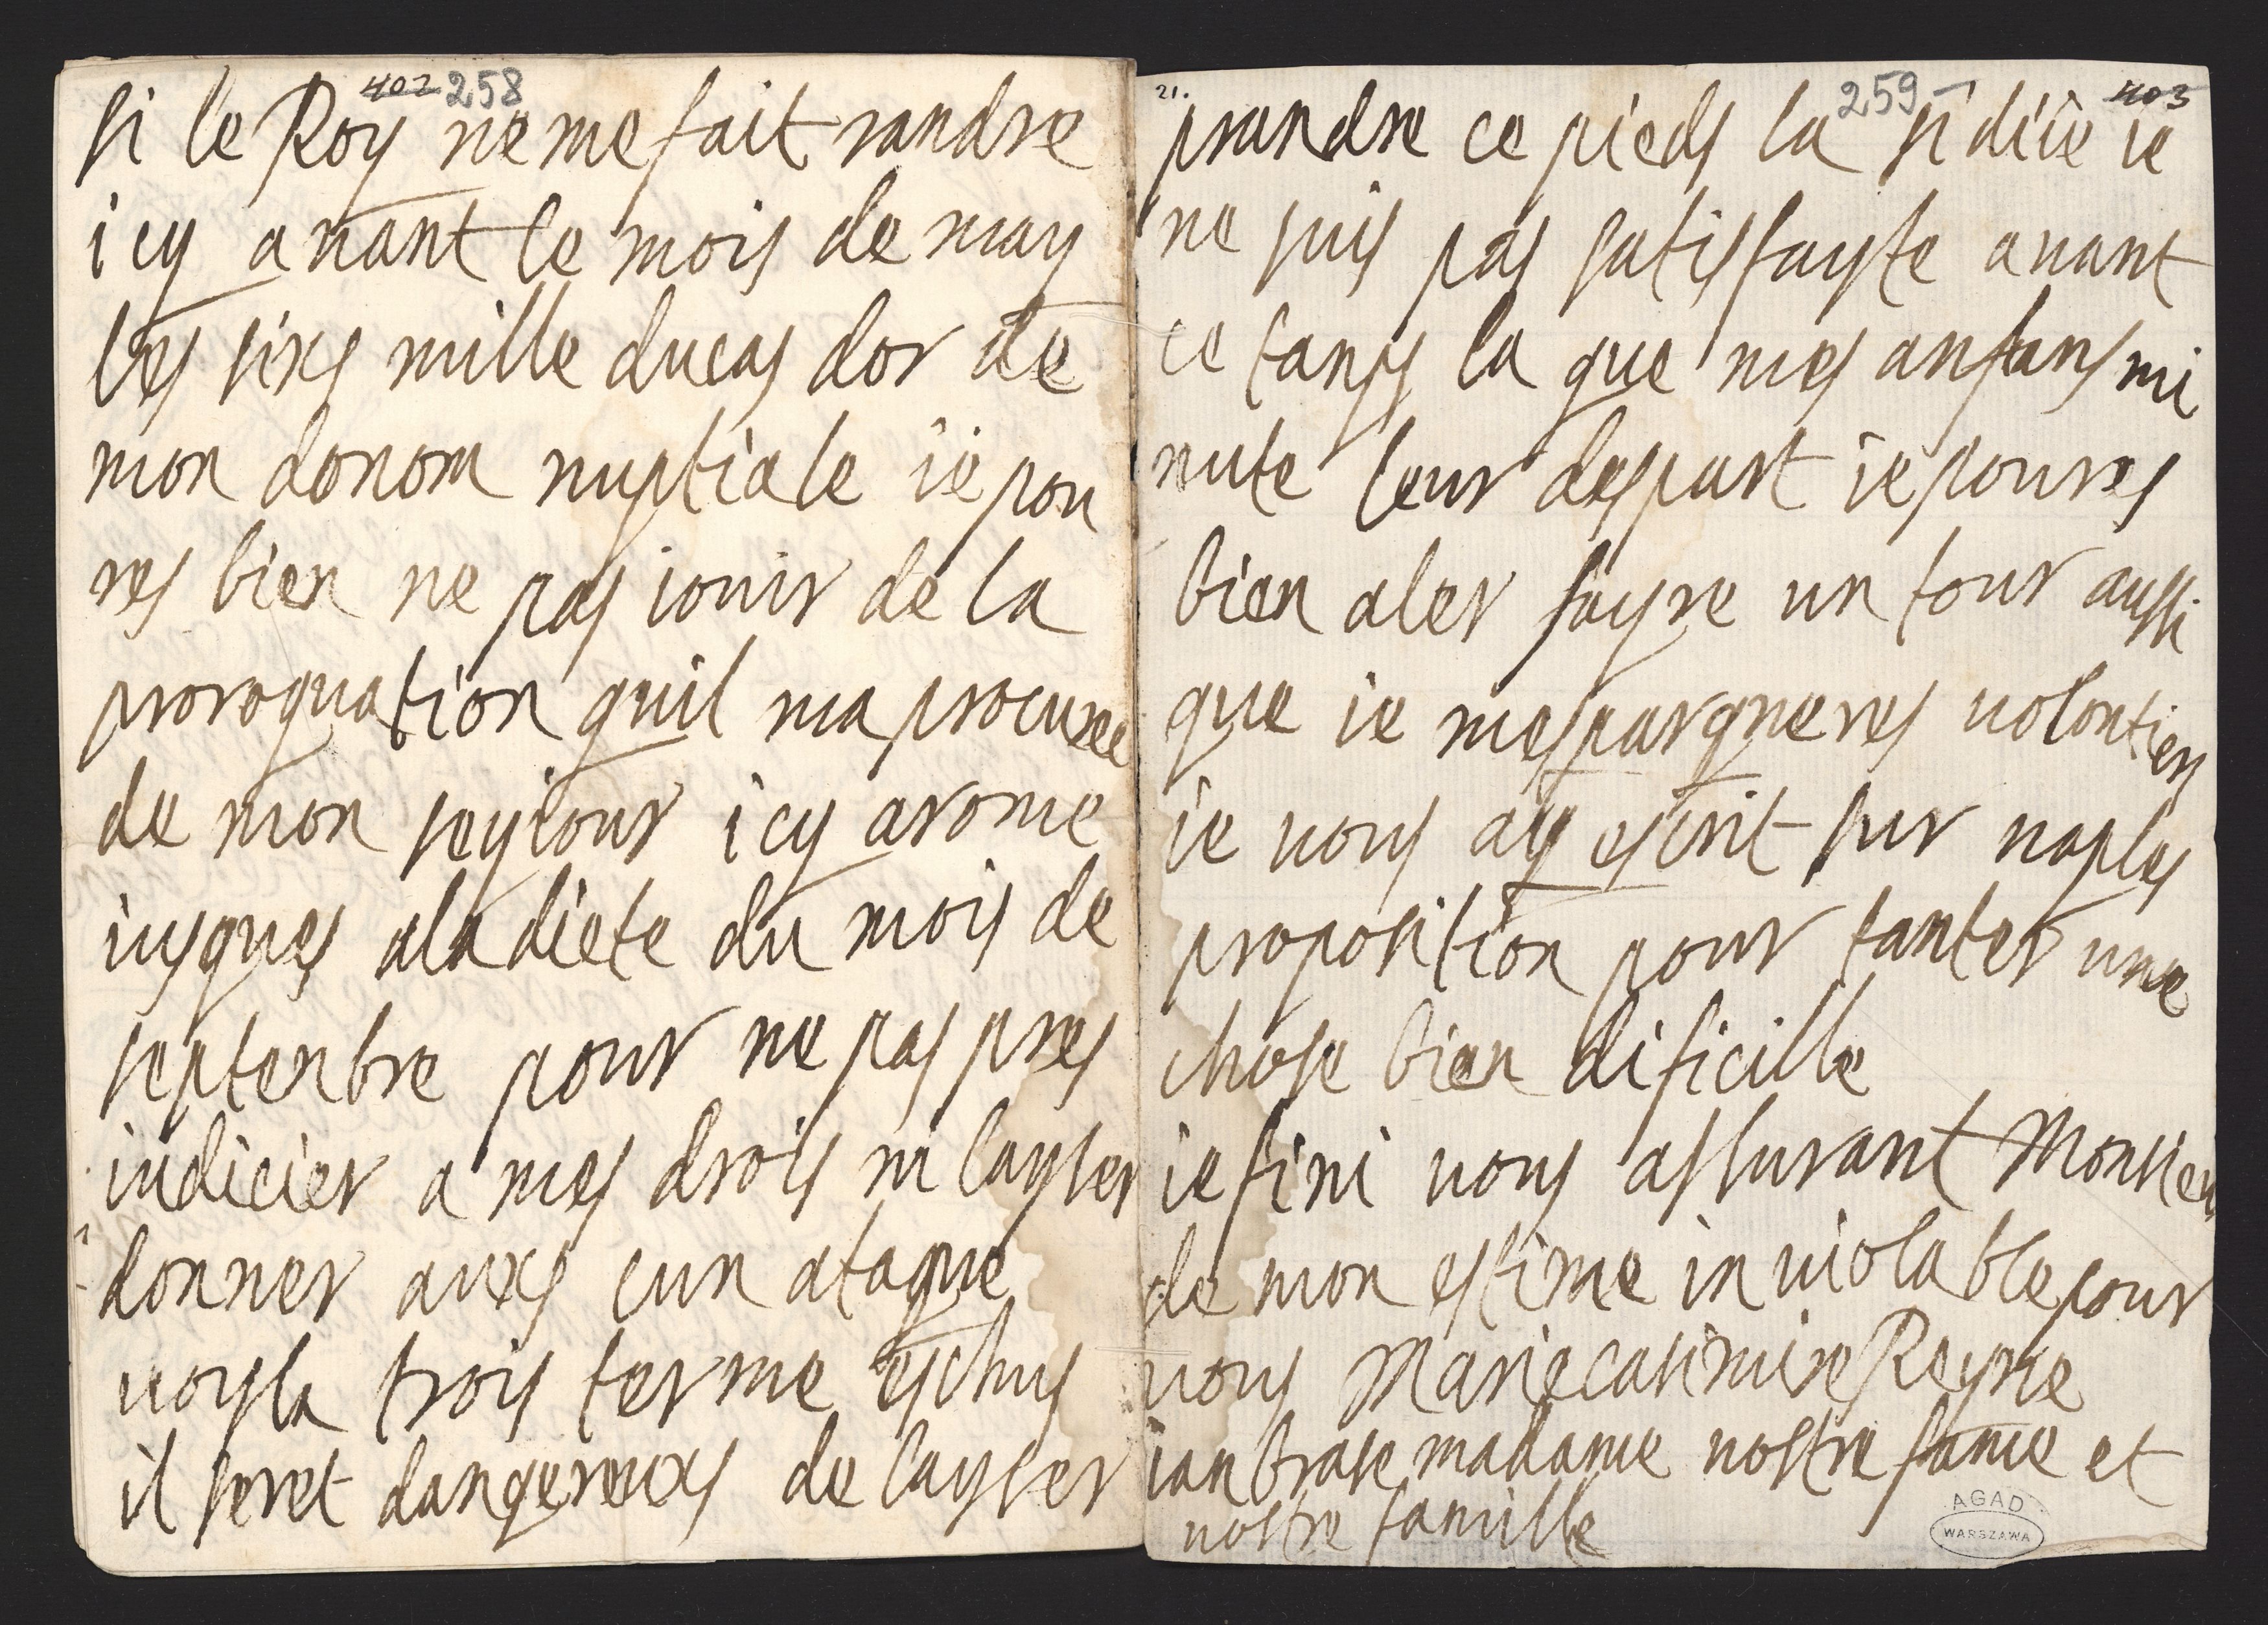 402 258
si le Roy ne me fait randre
icy avant le mois de may
les sixs mille ducas dor de
mon donom nuptiale ie pou
res bien ne pas iouir de la
proroquation quil ma procuree
de mon seyiour icy a rome
iusques a la diete du mois de
septenbre pour ne pas pres
iudicier a mes drois ni laysser
donner auxs cun ataque
voysla trois terme eschus
il seret dangereuxs de laysser
21. 259 403
prandre ce pieds la si diiè ie
ne suis pas satisfayste avant
ce tansps la que mes anfans mi
nute leur despart ie poures
bien aler fayre un tour aussi
que ie mespargneres volontiers
ie vous ay escrit sur naples
proposition pour tanter une
chose bien dificille
ie fini vous assurant Monsieur
de mon estime inviolable pour
vous Marie casimire Reyne
ianbrase madame vostre fame et
vostre famille
AGAD
WARSZAWA